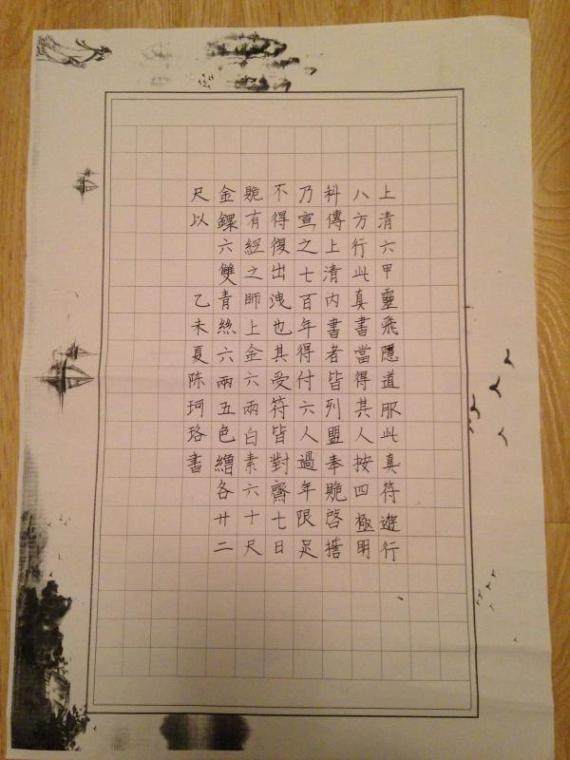 上清六甲靈飛隱道服此真符遊行
八方行此真書當得其人按四極明
科傳上清內書者皆列盟奉䞈啓誓
乃宣之七百年得付六人過年限足
不得復出洩也其受符皆對齋七日
䞈有經之師上金六兩白素六十尺
金鐶六雙青絲六兩五色繒各廿二
尺以 乙未夏陳珂珞書